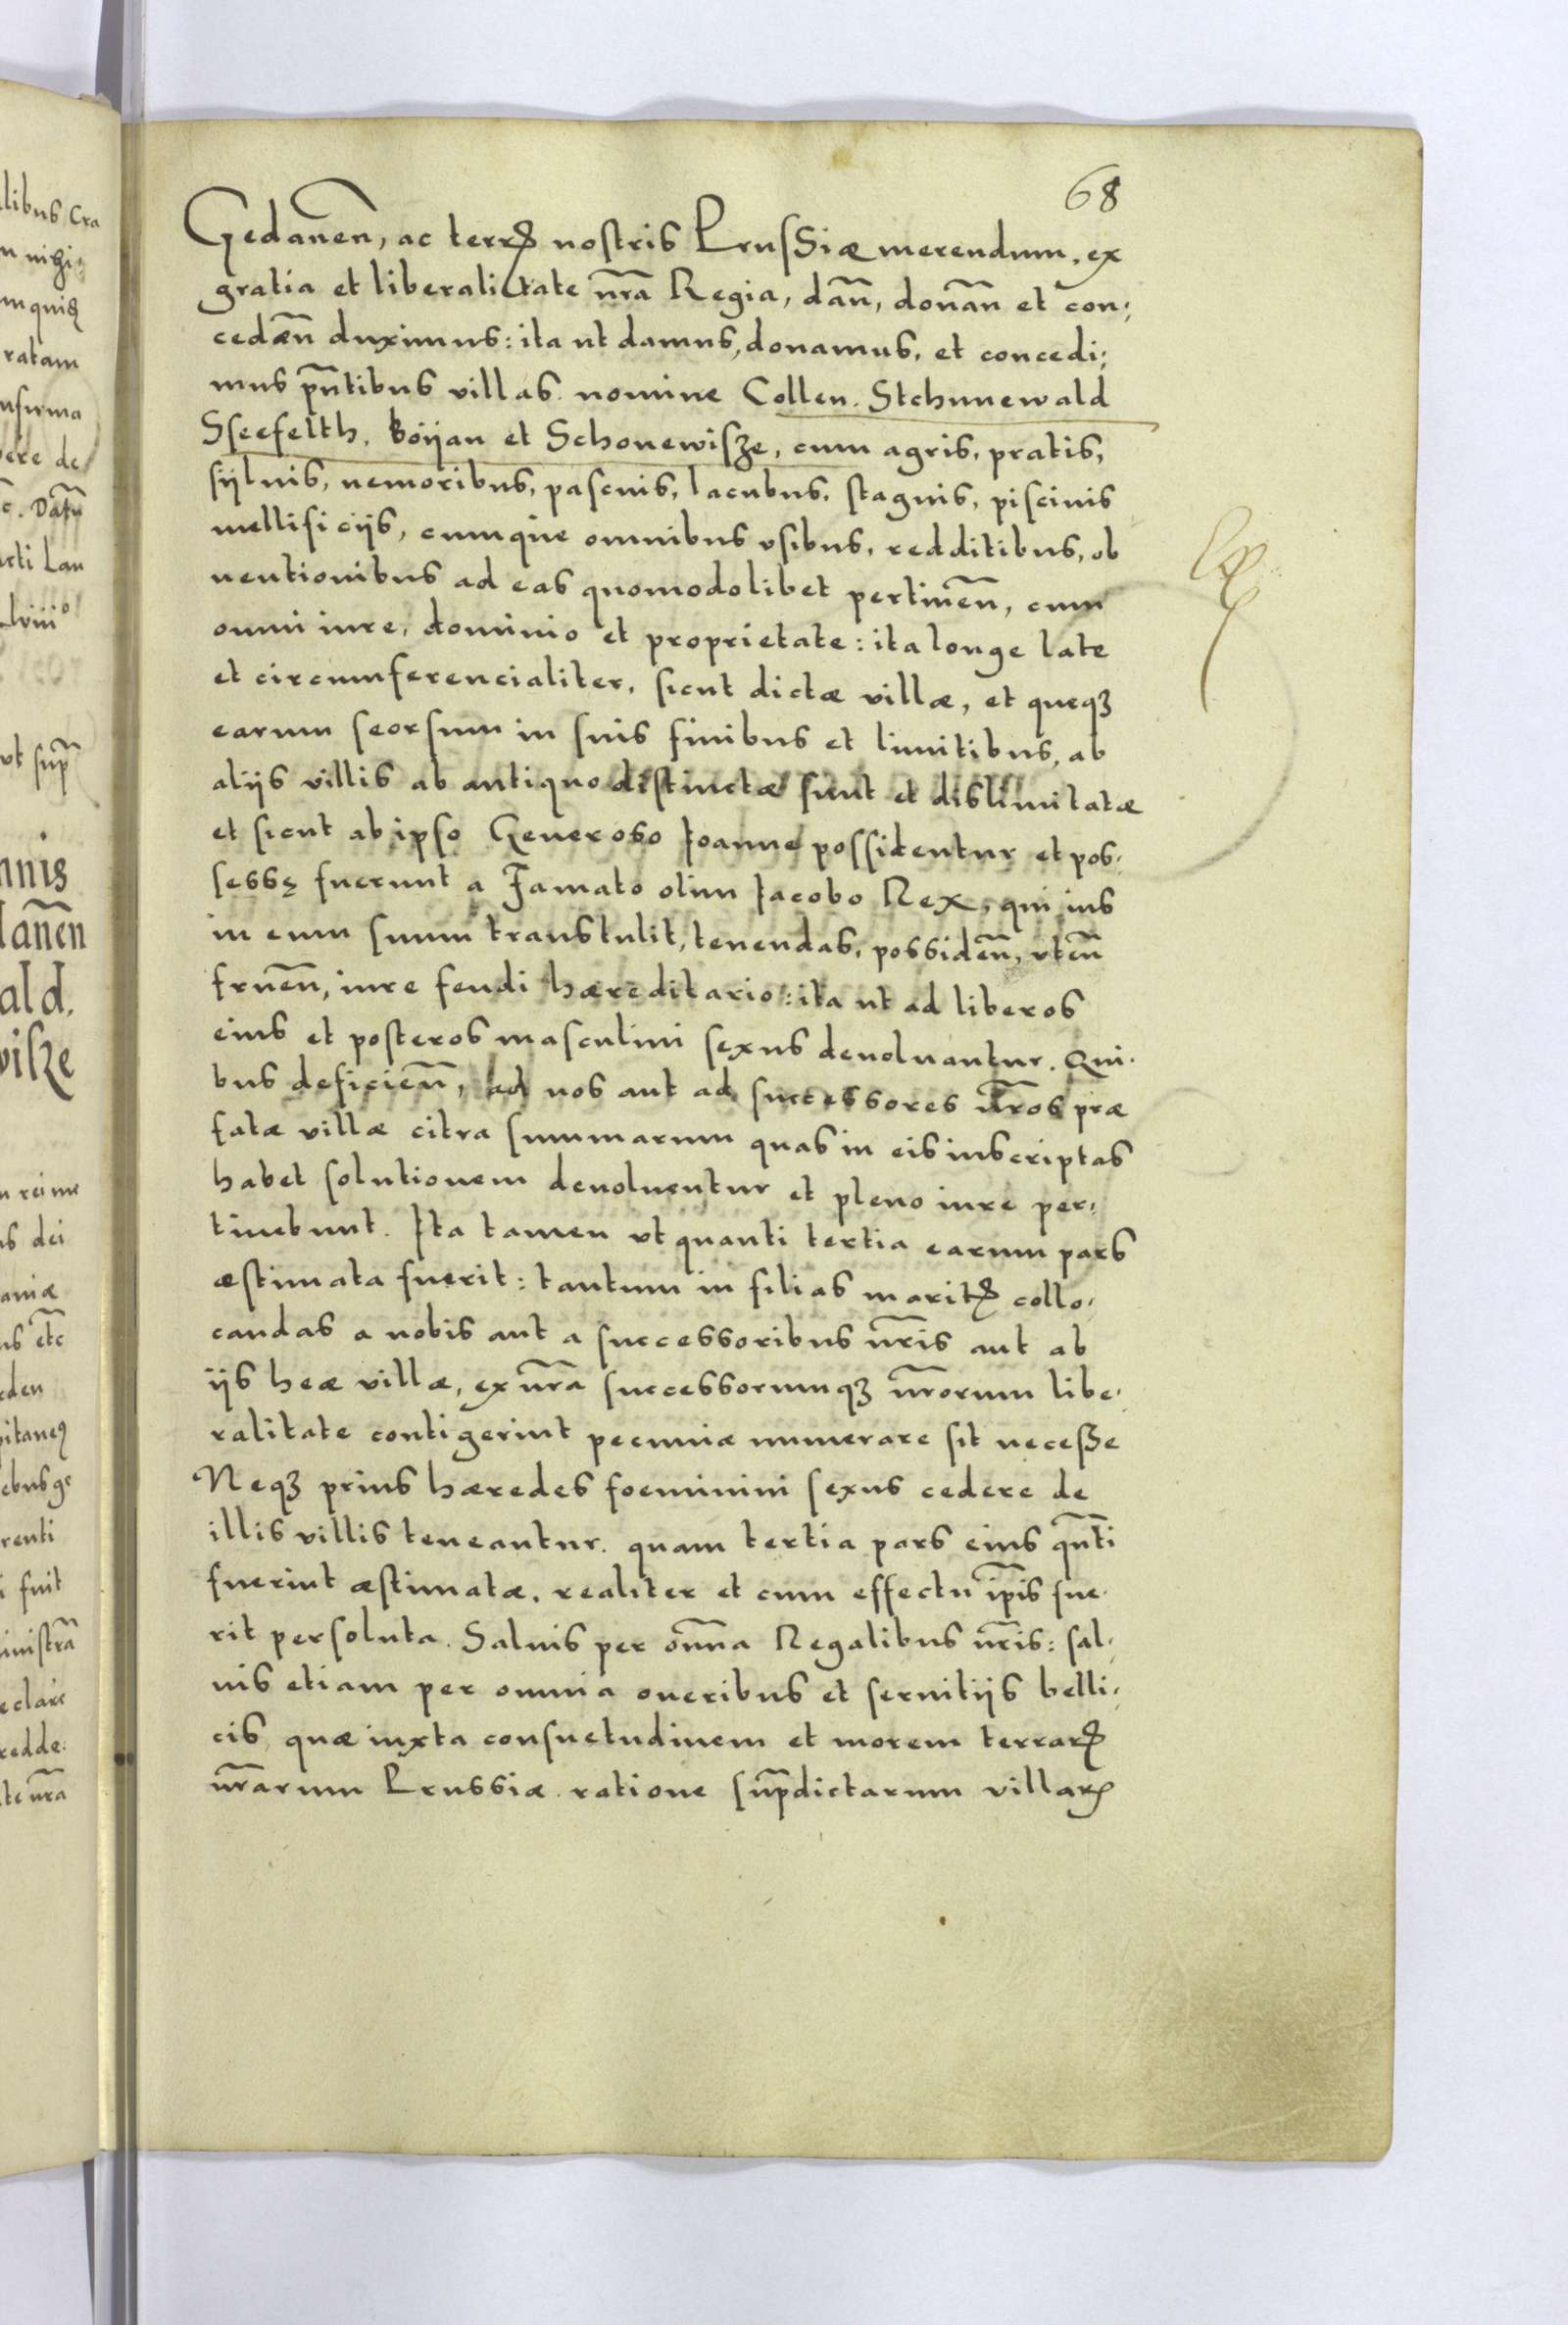 68
Gedaneñ, ac terrꝝ nostris Prussiæ merendum, ex
gratia et liberalitate nr̃a Regia, dañ, donañ et con:
cedeñ duximus: ita ut damus, donamus, et concedi:
mus pñtibus villas nomine Collen. Stchunewald
Sseefelth, Boÿan et Schonewisze, cum agris, pratis,
sÿluis, nemoribus, pascuis, lacubus, stagnis, piscinis
mellificijs, cumque omnibus vsibus, redditibus, ob
uentionibus ad eas quomodolibet pertineñ, cum
omni iure, dominio et proprietate: ita longe late
et circumferencialiter, sicut dictæ villæ, et queqꝫ
earum seorsum in suis finibus et limitibus, ab
alijs villis ab antiquo distinctæ sunt et dislimitatæ
et sicut ab ipso Generoso Joanne possidentur et pos:
sessę fuerunt a Famato olim Jacobo Rex, qui ius
in eum suum transtulit, tenendas, possideñ, vteñ
frueñ, iure feudi hæreditario: ita ut ad liberos
eius et posteros masculini sexus deuoluantur. Qui:
bus deficieñ, ad nos aut ad successores nr̃os præ
fatæ villæ citra summarum quas in eis inscriptas
habet solutionem deuoluentur et pleno iure per:
tinebunt. Ita tamen vt quanti tertia earum pars
æstimata fuerit: tantum in filias maritꝝ collo:
candas a nobis aut a successoribus nr̃is aut ab
ijs heæ villæ, ex nr̃a successorumqꝫ nr̃orum libe:
ralitate contigerint pecuniæ numerare sit necesse
Neqꝫ prius hæredes foeminini sexus cedere de
illis villis teneantur. quam tertia pars eius qñti
fuerint æstimatæ, realiter et cum effectu ip̃is fue:
rit persoluta. Saluis per oñia Regalibus nr̃is: sal:
uis etiam per omnia oneribus et seruitijs belli:
cis, quæ iuxta consuetudinem et morem terrarꝝ
nr̃arum Prussiæ ratione sup̃dictarum villarꝝ